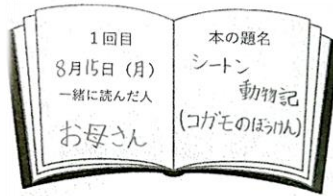 1回目
8月15日(月)
一緒に読んだ人
お母さん
本の題名
シートン
動物記
(コガモのぼうけん)